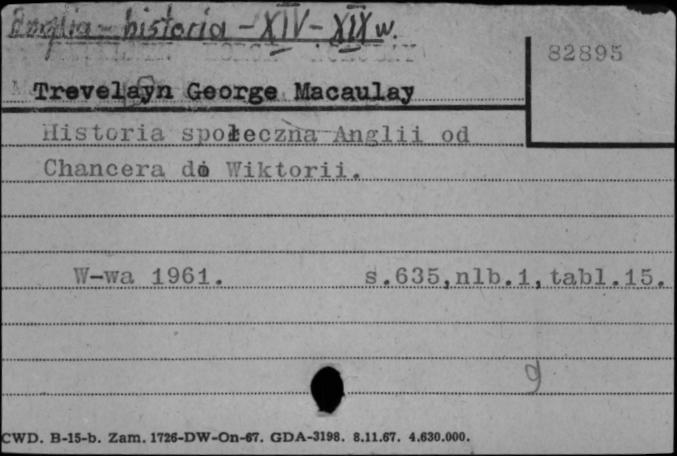 Anglia - historia - XIV - XIX w.
82895
Trevelayn George Macaulay
Historia społeczna Anglii od
Chancera do Wiktorii.
W-wa 1961. s.635,nlb.1,tabl.15.
9
CWD. B-15-b. Zam. 1726-DW-On-67. GDA-3198. 8.11.67. 4.630.000.